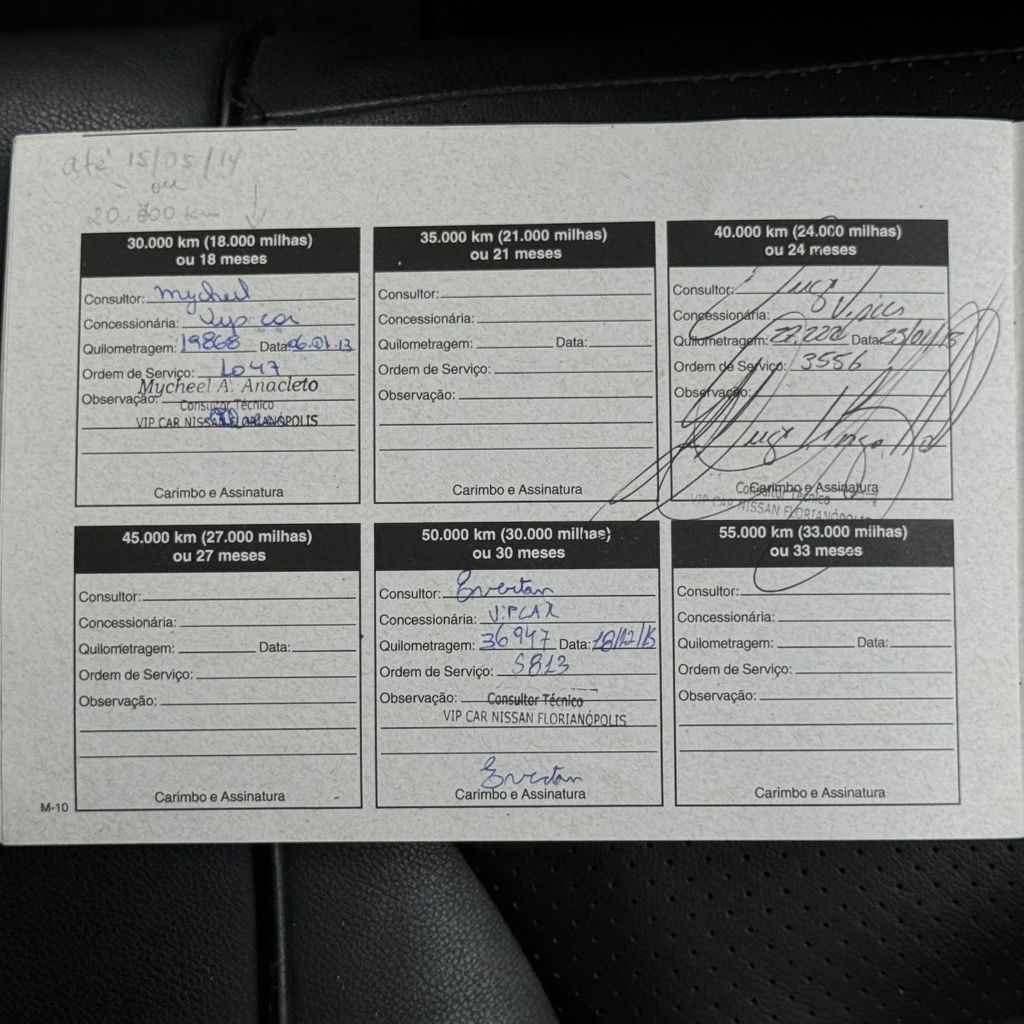 até 15/05/14
ou
20.000 km ↓
30.000 km (18.000 milhas)
ou 18 meses
Consultor: Mycheel
Concessionária: Vip car
Quilometragem: 19868 Data: 06.01.13
Ordem de Serviço: 1047
Mycheel A. Anacleto
Observação:
Consultor Técnico
VIP CAR NISSAN FLORIANÓPOLIS
Carimbo e Assinatura
35.000 km (21.000 milhas)
ou 21 meses
Consultor:
Concessionária:
Quilometragem: Data:
Ordem de Serviço:
Observação:
Carimbo e Assinatura
40.000 km (24.000 milhas)
ou 24 meses
Consultor:
Concessionária:
Quilometragem: 27.222 Data: 23/01/15
Ordem de Serviço: 3556
Observação:
Carimbo e Assinatura
Consultor Técnico
VIP CAR NISSAN FLORIANÓPOLIS
45.000 km (27.000 milhas)
ou 27 meses
Consultor:
Concessionária:
Quilometragem: Data:
Ordem de Serviço:
Observação:
Carimbo e Assinatura
50.000 km (30.000 milhas)
ou 30 meses
Consultor: Evertan
Concessionária: VIPCAR
Quilometragem: 36947 Data: 18/12/15
Ordem de Serviço: 5813
Observação: Consultor Técnico
VIP CAR NISSAN FLORIANÓPOLIS
Evertan
Carimbo e Assinatura
55.000 km (33.000 milhas)
ou 33 meses
Consultor:
Concessionária:
Quilometragem: Data:
Ordem de Serviço:
Observação:
Carimbo e Assinatura
M-10